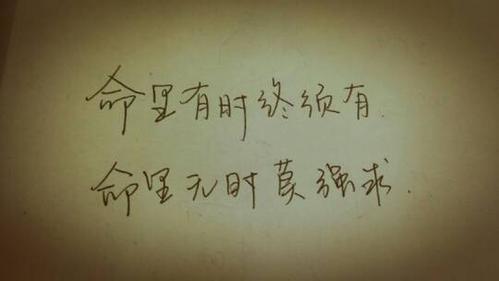 命里有时终须有.
命里无时莫强求.